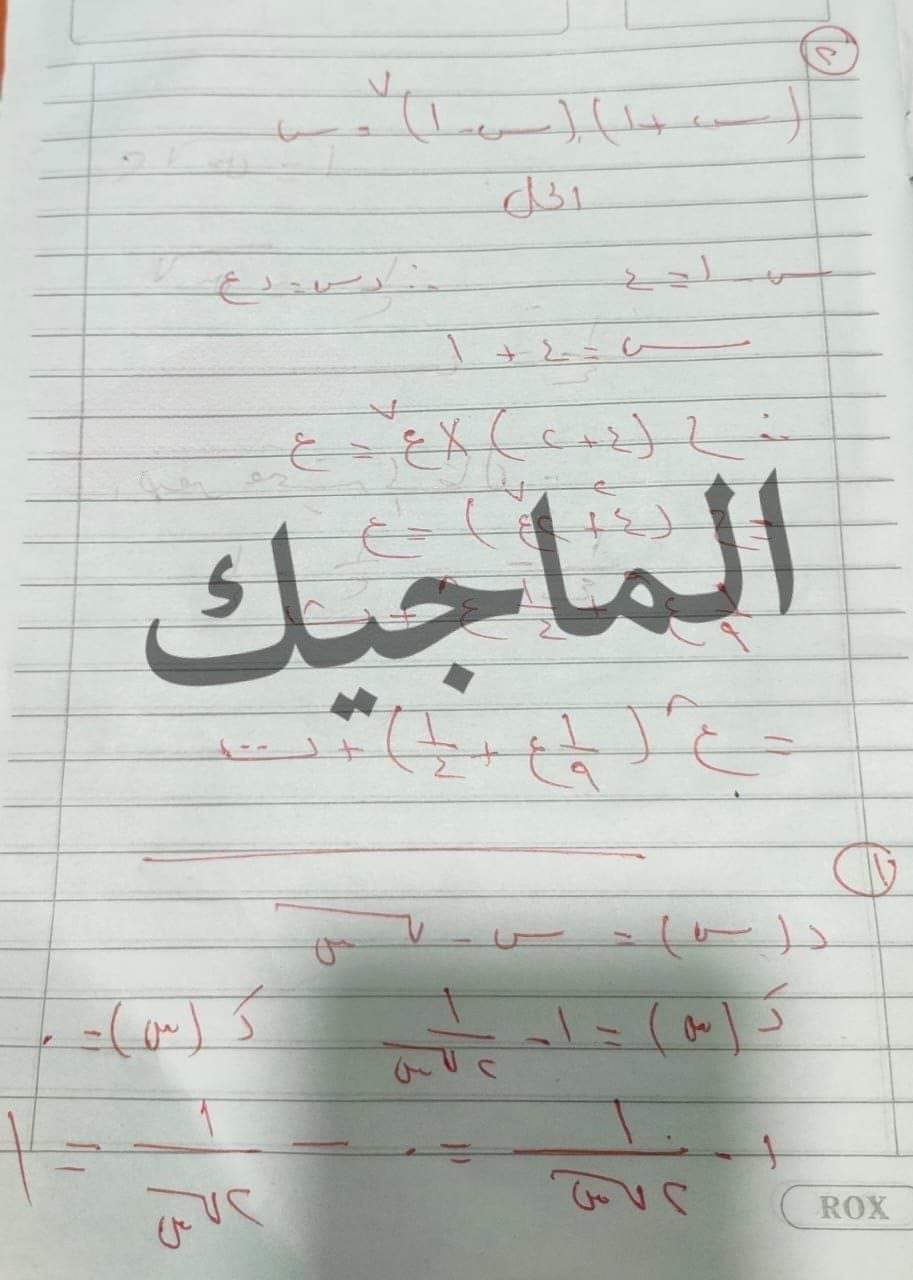 ٢
(س + ١) (س - ١)^٧ ء س
الحل
س - ١ = ع ∴ ء س = ء ع
س = ع + ١
∴ ∫ (ع + ٢) × ع^٧ ء ع
الماجيك
= ع ( ١/٩ ع + ١/٤ ) + ث
د (س) = س - √س
دَ (س) = ١ - ١/٢√س دَ (س) = ٠
١ - ١/٢√س = ٠ - ١/٢√س = ١
ROX